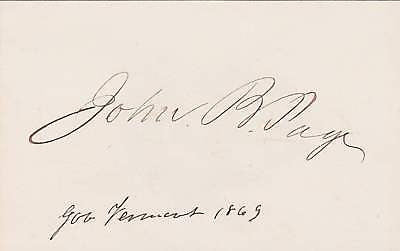 John. B. Page
Gov Vermont 1869